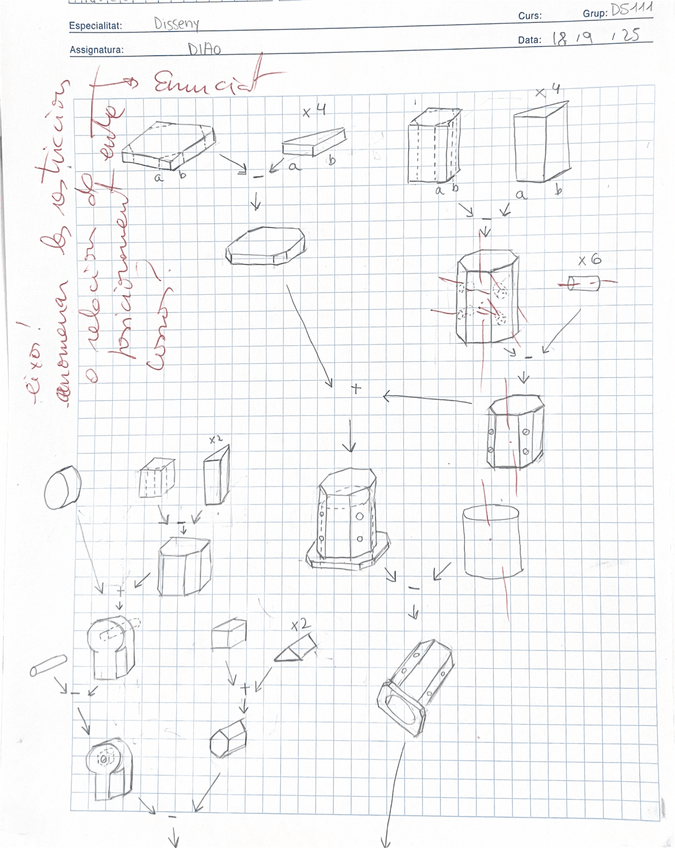 Especialitat: Disseny
Curs:
Grup: DS111
Assignatura: DIAO
Data: 18 / 9 / 25
→ Enunciat
-eixos!
anomenar les restriccions
o relacions de
posicionament entre
cossos!
x4
x4
a b
a b
a b
a b
x6
+
x2
+
x2
+